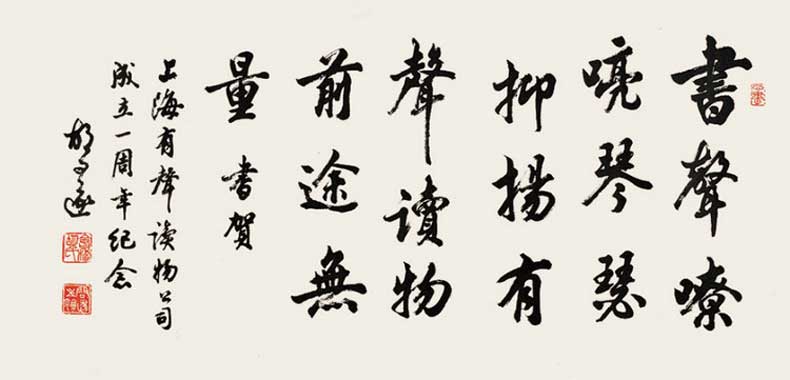 書聲嘹
喨琴瑟
抑揚有
聲讀物
前途無
量 書賀
上海有聲读物公司
成立一周年纪念
胡问遂